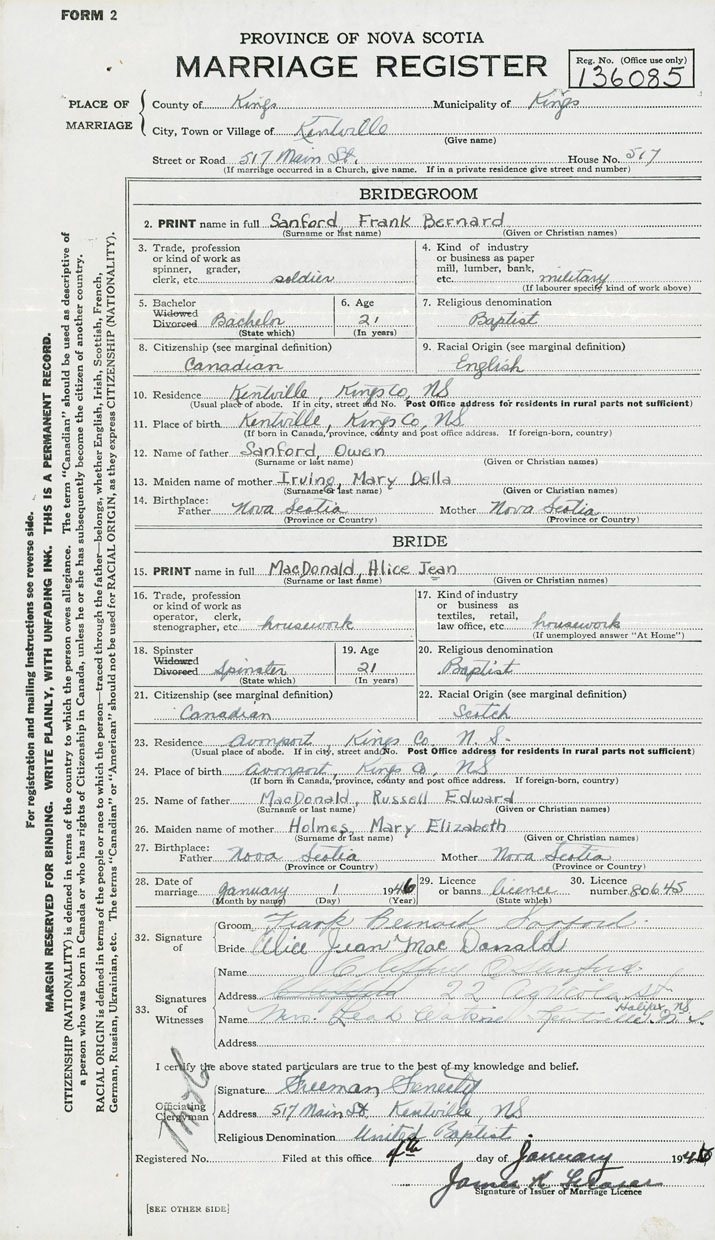 FORM 2
PROVINCE OF NOVA SCOTIA
MARRIAGE REGISTER
Reg. No. (Office use only)
136085
PLACE OF MARRIAGE
County of Kings Municipality of Kings
City, Town or Village of Kentville
(Give name)
Street or Road 517 Main St. House No. 517
(If marriage occurred in a Church, give name. If in a private residence give street and number)
BRIDEGROOM
2. PRINT name in full Sanford, Frank Bernard
(Surname or last name) (Given or Christian names)
3. Trade, profession or kind of work as spinner, grader, clerk, etc. soldier
4. Kind of industry or business as paper mill, lumber, bank, etc. military
(If labourer specify kind of work above)
5. Bachelor Widowed Divorced Bachelor
(State which)
6. Age 21
(In years)
7. Religious denomination
Baptist
8. Citizenship (see marginal definition)
Canadian
9. Racial Origin (see marginal definition)
English
10. Residence Kentville, Kings Co, NS
(Usual place of abode. If in city, street and No. Post Office address for residents in rural parts not sufficient)
11. Place of birth Kentville, Kings Co, NS
(If born in Canada, province, county and post office address. If foreign-born, country)
12. Name of father Sanford, Owen
(Surname or last name) (Given or Christian names)
13. Maiden name of mother Irving, Mary Della
(Surname or last name) (Given or Christian names)
14. Birthplace: Father Nova Scotia Mother Nova Scotia
(Province or Country) (Province or Country)
BRIDE
15. PRINT name in full MacDonald, Alice Jean
(Surname or last name) (Given or Christian names)
16. Trade, profession or kind of work as operator, clerk, stenographer, etc housework
17. Kind of industry or business as textiles, retail, law office, etc. housework
(If unemployed answer "At Home")
18. Spinster Widowed Divorced Spinster
(State which)
19. Age 21
(In years)
20. Religious denomination
Baptist
21. Citizenship (see marginal definition)
Canadian
22. Racial Origin (see marginal definition)
Scotch
23. Residence Avonport, Kings Co, N.S.
(Usual place of abode. If in city, street and No. Post Office address for residents in rural parts not sufficient)
24. Place of birth Avonport, Kings Co, NS
(If born in Canada, province, county and post office address. If foreign-born, country)
25. Name of father MacDonald, Russell Edward
(Surname or last name) (Given or Christian names)
26. Maiden name of mother Holmes, Mary Elizabeth
(Surname or last name) (Given or Christian names)
27. Birthplace: Father Nova Scotia Mother Nova Scotia
(Province or Country) (Province or Country)
28. Date of marriage January 1 1946
(Month by name) (Day) (Year)
29. Licence or banns licence
(State which)
30. Licence number 80645
32. Signature of
Groom Frank Bernard Sanford
Bride Alice Jean MacDonald
33. Signatures of Witnesses
Name
Address 22 St.
Halifax, NS
Name Mrs. Kentville N.S.
Address
I certify the above stated particulars are true to the best of my knowledge and belief.
Officiating Clergyman
Signature Freeman
Address 517 Main St. Kentville, NS
Religious Denomination United Baptist
Registered No. Filed at this office 4th day of January 1946
James
Signature of Issuer of Marriage Licence
[SEE OTHER SIDE]
For registration and mailing instructions see reverse side.
MARGIN RESERVED FOR BINDING. WRITE PLAINLY, WITH UNFADING INK. THIS IS A PERMANENT RECORD.
CITIZENSHIP (NATIONALITY) is defined in terms of the country to which the person owes allegiance. The term "Canadian" should be used as descriptive of
a person who was born in Canada or who has rights of Citizenship in Canada, unless he or she has subsequently become the citizen of another country.
RACIAL ORIGIN is defined in terms of the people or race to which the person—traced through the father—belongs, whether English, Irish, Scottish, French,
German, Russian, Ukrainian, etc. The terms "Canadian" or "American" should not be used for RACIAL ORIGIN, as they express CITIZENSHIP (NATIONALITY).